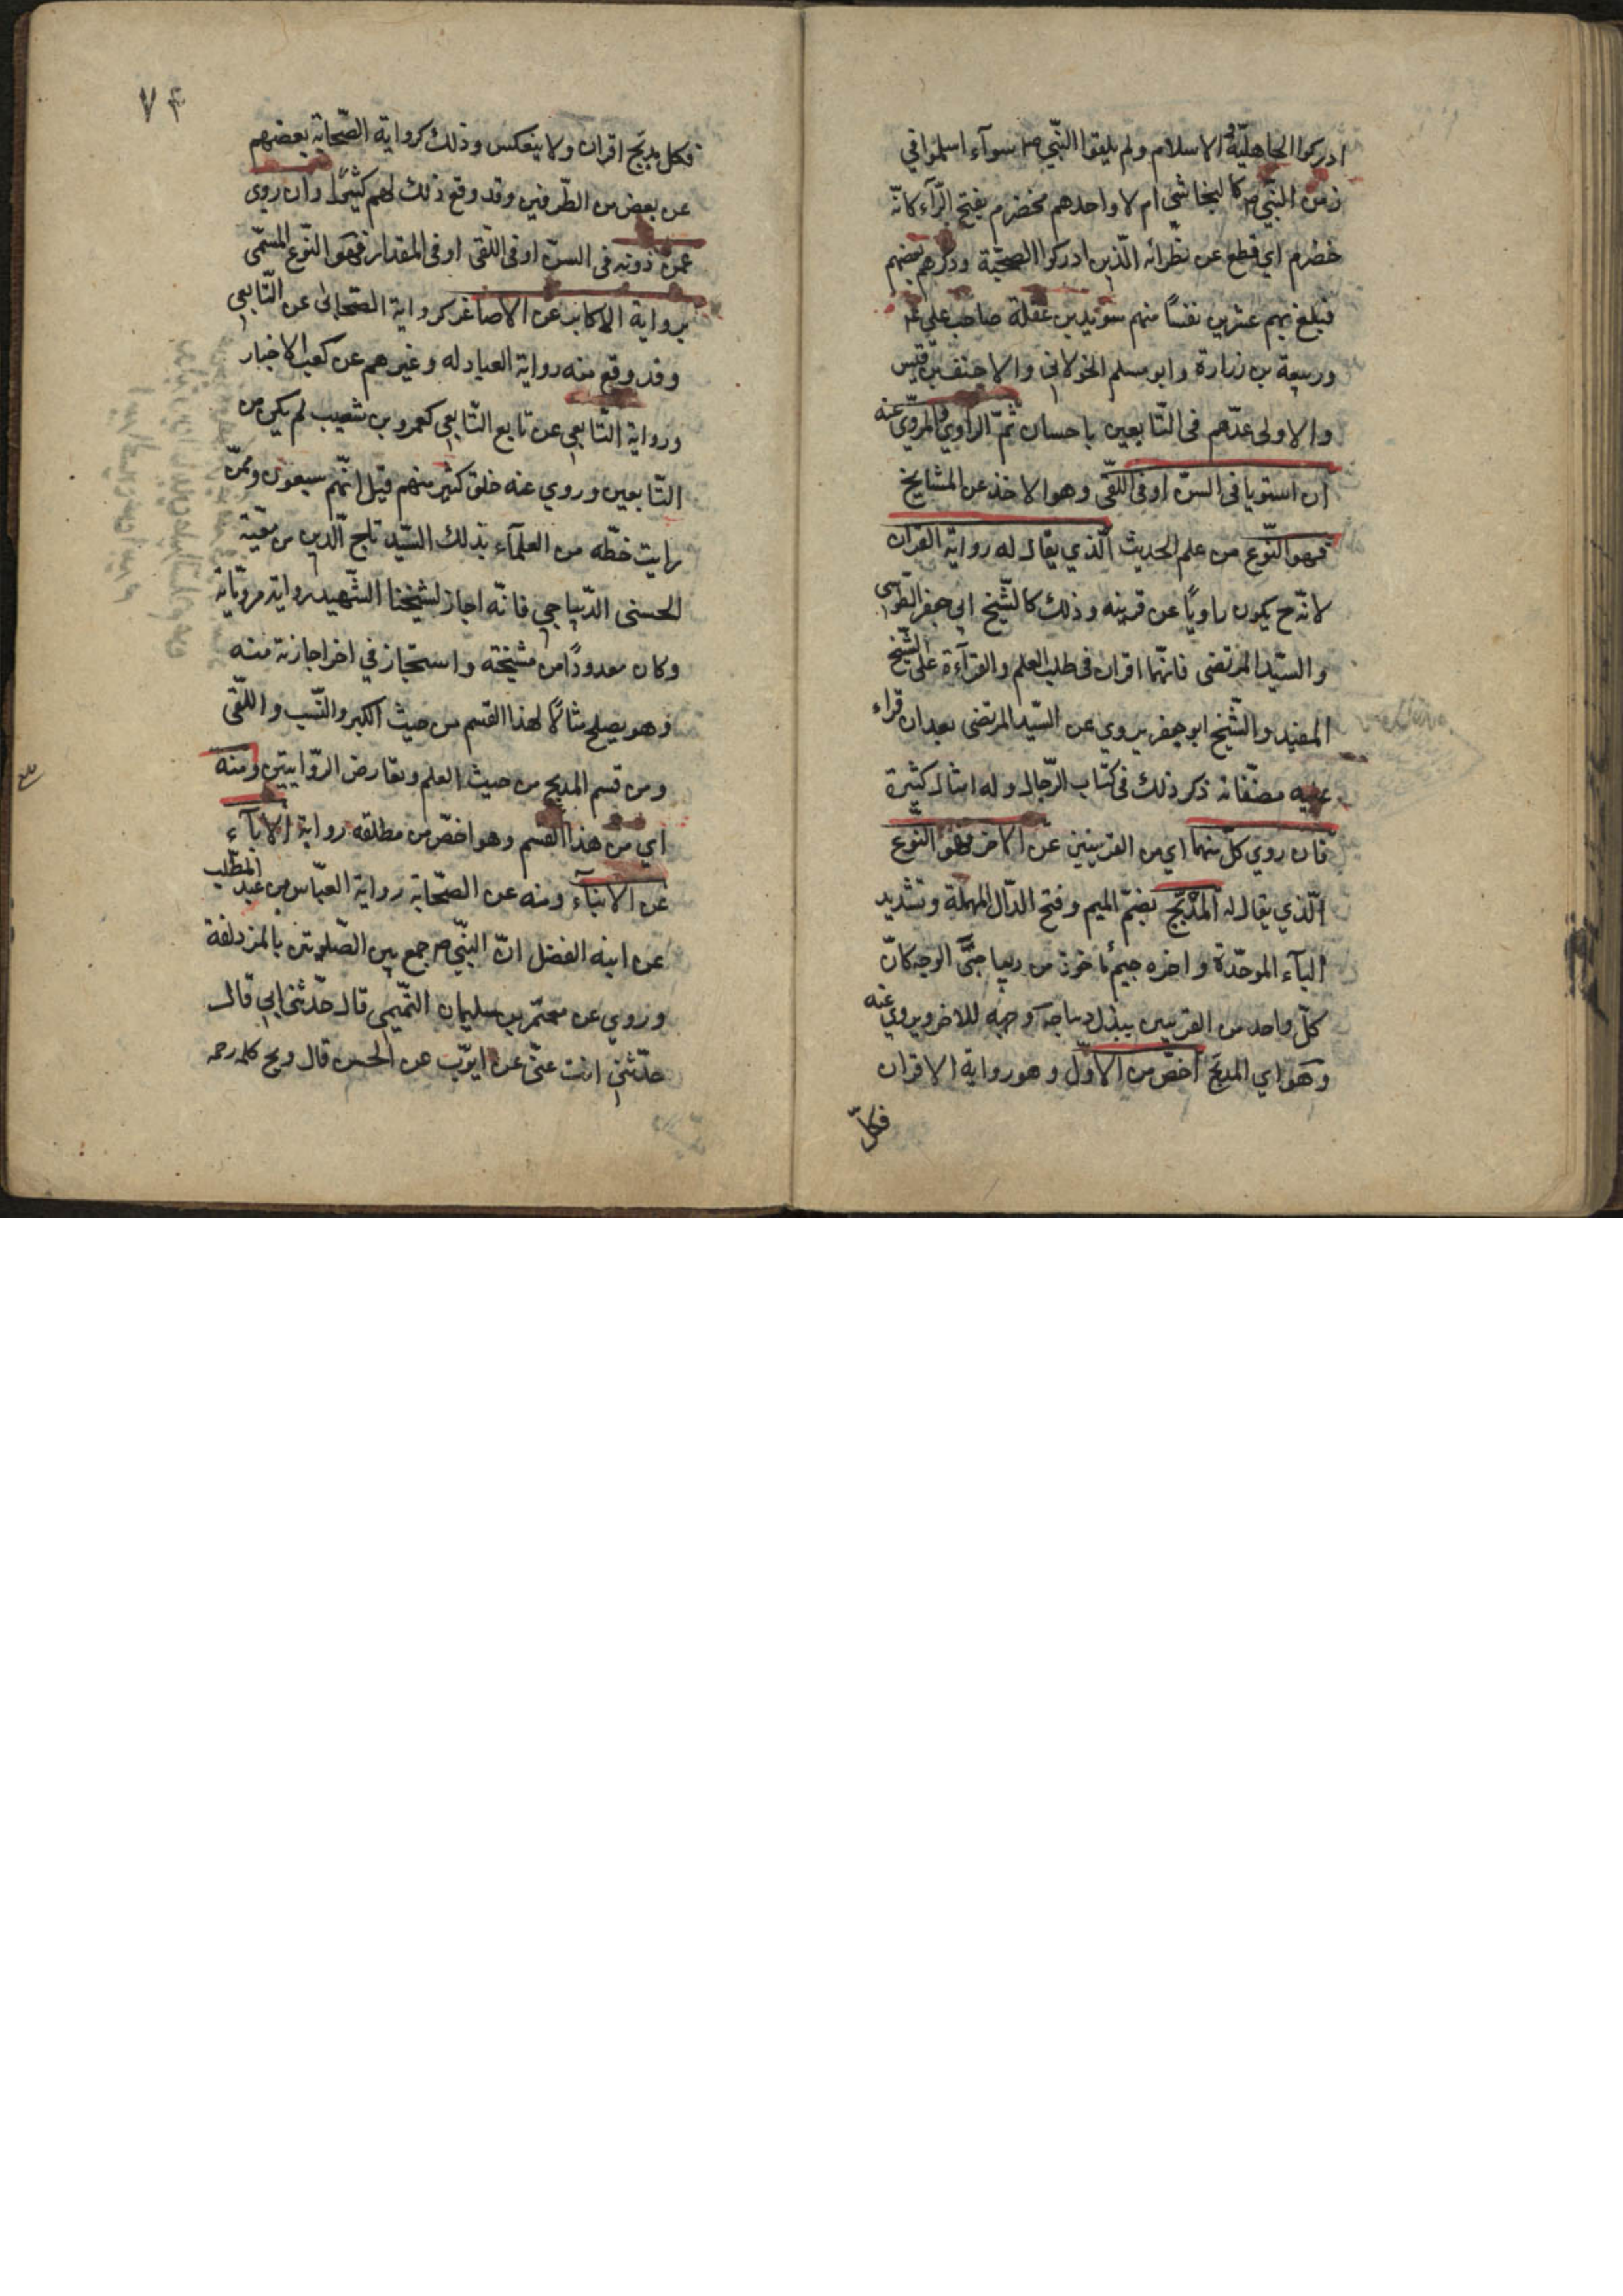 ادركوا الجاهليّة و الاسلام ولم يلقوا النّبي ص سوآء اسلموا في
زمن النّبي ص كالنجاشي ام لا واحدهم مخضرم بفتح الرّآء كانّه
خضرم اي قطع عن نظرائه الّذين ادركوا الصحبة وذكرهم بعضهم
فبلغ بهم عشرين نفسًا منهم سويد بن غفلة صاحب علي ع
وربيعة بن زرارة وابو مسلم الخولاني والاحنف بن قيس
والاولى عدّهم فى التّابعين باحسان ثمّ الراوي و المروّي عنه
ان استويا فى السنّ او فى اللّقى وهو الاخذ عن المشايخ
فهو النّوع من علم الحديث الّذي يقال له رواية القران
لانّه ح يكون راويًا عن قرينه وذلك كالشّيخ ابي جعفر الطّوسى
والسّيد المرتضى فانّهما اقران فى طلب العلم والقرآءة على الشّيخ
المفيد والشّيخ ابو جعفر يروي عن السّيد المرتضى بعد ان قراء
عليه مصنّفاته ذكر ذلك فى كتاب الرّجال وله امثال كثيرة
فان روي كلّ منهما اي من القرينين عن الاخر فهو النّوع
الّذي يقال له المدبّج بضمّ الميم وفتح الدّال المهملة وتشديد
البآء الموحّدة واخره جيم ماخوذ من ديباجتَي الوجه كانّ
كلّ واحد من القرينين يبذل ديباجة وجهه للاخر ويروي عنه
وهو اي المدبّج اخصّ من الاوّل وهو رواية الاقران
فكلّ
٧٤
فكل مدبّج اقران ولا ينعكس وذلك كرواية الصّحابة بعضهم
عن بعض من الطّرفين وقد وقع ذلك لهم كثيرًا وان روى
عمّن دونه فى السنّ او فى اللّقى او فى المقدار فهو النّوع المسمّى
برواية الاكابر عن الاصاغر كرواية الصّحابى عن التّابعي
وقد وقع منه رواية العبادله وغيرهم عن كعب الاحبار
ورواية التّابعي عن تابع التّابعي كعمرو بن شعيب لم يكن من
التّابعين وروي عنه خلق كثير منهم قيل انّهم سبعون وممّن
رايت خطّه من العلمآء بذلك السّيد تاج الدّين بن معيّة
الحسنى الدّيباجي فانّه اجاز لشيخنا الشّهيد رواية مرويّاته
وكان معدودًا من مشيخته واستجاز في اخر اجازته منه
وهو يصلح مثالًا لهذا القسم من حيث الكبر والنّسب واللّقى
ومن قسم المدبج من حيث العلم وتعارض الرّوايتين ومنه
اي من هذا القسم وهو اخصّ من مطلقه رواية الابآء
عن الابنآء ومنه عن الصّحابة رواية العبّاس بن عبد المطّلب
عن ابنه الفضل انّ النّبي ص جمع بين الصّلوتين بالمزدلفة
وروي عن معتمر بن سليمان التّميمي قال حدّثنى ابي قال
حدّثني انت عنّي عن ايوّب عن الحسن قال ويح كلمه رحمه